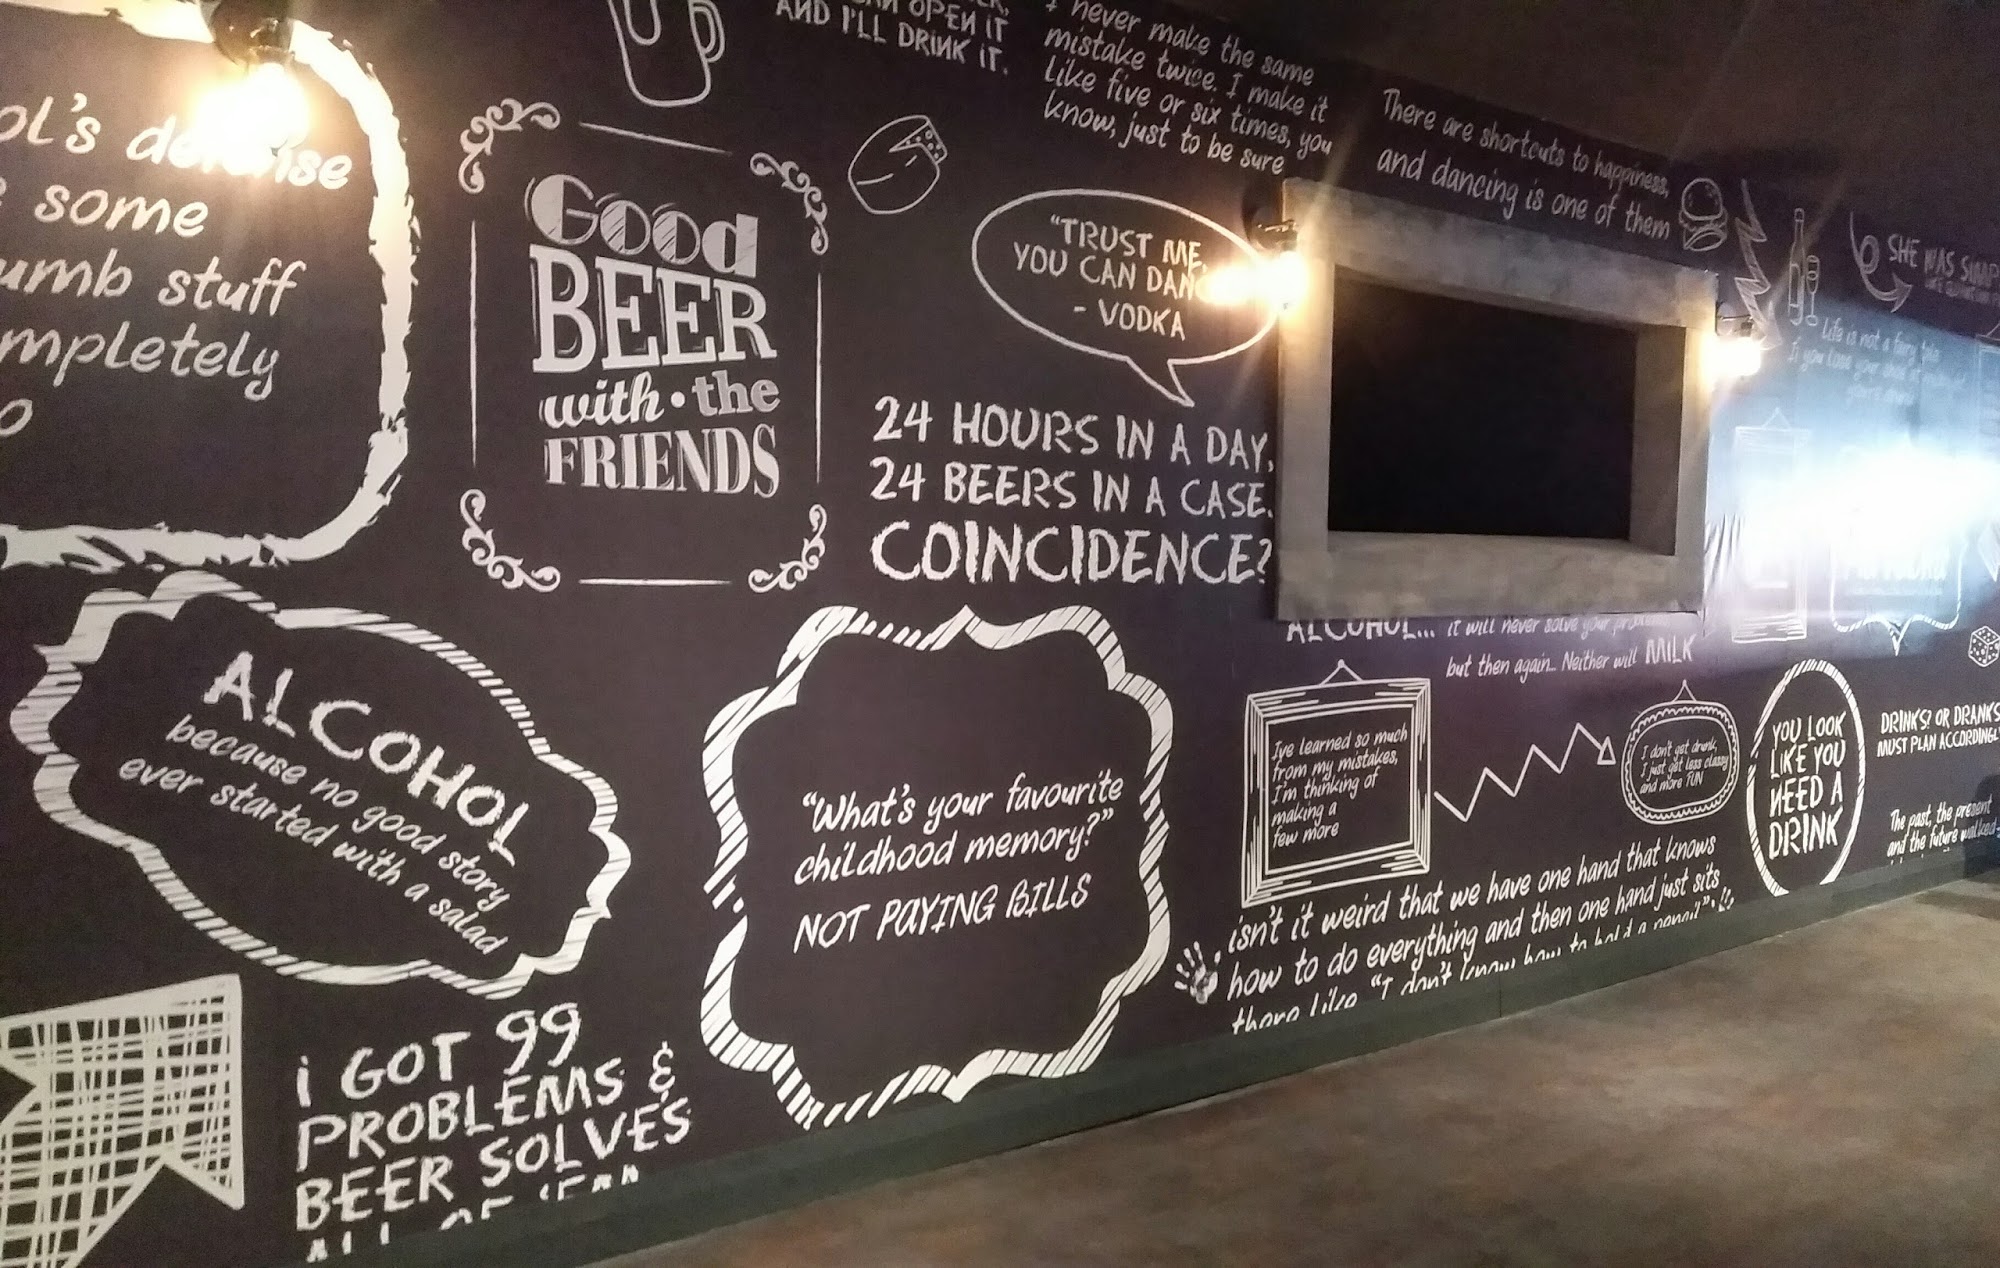 some
stuff
OPEN IT
AND I'LL DRINK IT.
I never make the same
mistake twice. I make it
like five or six times, you
know, just to be sure
There are shortcuts to happiness,
and dancing is one of them
GOOD
BEER
with • the
FRIENDS
"TRUST ME,
YOU CAN
- VODKA
24 HOURS IN A DAY,
24 BEERS IN A CASE.
COINCIDENCE?
SHE WAS
Life is not a fairy
ALCOHOL
because no good story
ever started with a salad
"What's your favourite
childhood memory?"
NOT PAYING BILLS
ALCOHOL... it will never solve your
but then again... Neither will MILK
I've learned so much
from my mistakes,
I'm thinking of
making a
few more
I don't get drunk,
I just get less classy
and more FUN
YOU LOOK
LIKE YOU
NEED A
DRINK
DRINKS? OR DRANKS
MUST PLAN ACCORDINGLY
The past, the present
and the future walked
isn't it weird that we have one hand that knows
how to do everything and then one hand just sits
there like "I don't know how to hold a pencil"
I GOT 99
PROBLEMS &
BEER SOLVES
ALL OF 'EM